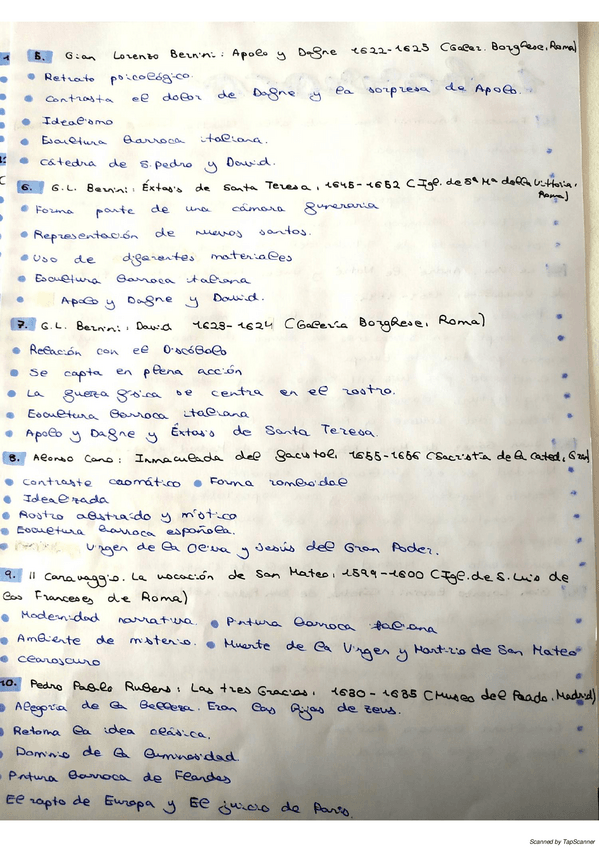 5. Gian Lorenzo Bernini: Apolo y Dafne 1622-1625 (Galer. Borghese, Roma)
• Retrato psicológico.
• Contrasta el dolor de Dafne y la sorpresa de Apolo.
• Idealismo
• Escultura barroca italiana.
• Cátedra de S. Pedro y David.
6. G.L. Bernini: Éxtasis de Santa Teresa, 1645-1652 (Igl. de Sª Mª della Vittoria, Roma)
• Forma parte de una cámara funeraria
• Representación de nuevos santos.
• Uso de diferentes materiales
• Escultura barroca italiana
• Apolo y Dafne y David.
7. G.L. Bernini: David 1623-1624 (Galería Borghese, Roma)
• Relación con el Discóbolo
• Se capta en plena acción
• La fuerza física se centra en el rostro.
• Escultura barroca italiana
• Apolo y Dafne y Éxtasis de Santa Teresa.
8. Alonso Cano: Inmaculada del facistol, 1655-1656 (Sacristía de la Cated, Gran)
• Contraste cromático • Forma romboidal
• Idealizada
• Rostro abstraído y místico
• Escultura barroca española.
Virgen de la Oliva y Jesús del Gran Poder.
9. Il Caravaggio. La vocación de San Mateo, 1599-1600 (Igl. de S. Luis de
los Franceses de Roma)
• Modernidad narrativa. • Pintura barroca italiana
• Ambiente de misterio. • Muerte de la Virgen y Martirio de San Mateo
• Claroscuro
10. Pedro Pablo Rubens: Las tres Gracias, 1630-1635 (Museo del Prado, Madrid)
• Alegoría de la belleza. Eran las hijas de Zeus.
• Retoma la idea clásica.
• Dominio de la luminosidad.
• Pintura barroca de Flandes
El rapto de Europa y El juicio de Paris.
Scanned by TapScanner